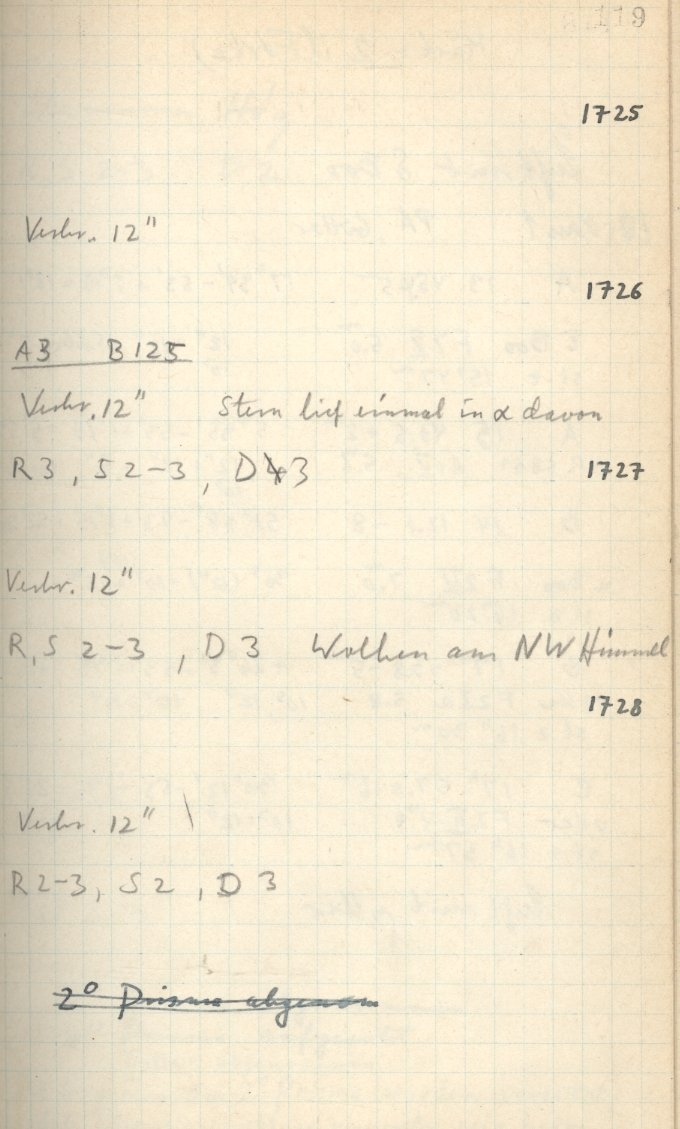 119
1725
Verbr. 12"
1726
A3 B125
Verbr. 12" Stern lief einmal in α davon
R3, S2-3, D4 3 1727
Verbr. 12"
R, S 2-3, D3 Wolken am NW Himmel
1728
Verbr. 12"
R2-3, S2, D3
2° Prisma abgenom